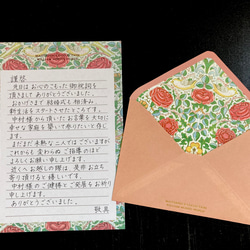 謹啓
先日は お心のこもった御祝詞を
頂きまして ありがとうございました。
おかげさまで 結婚式も 相済み
新生活を スタートさせたところです。
中村様から 頂いた お言葉を 大切に
幸せな 家庭を 築いて 参りたいと 存じ
ます。
まだまだ 未熟な 二人では ございますが
これからも 変わらぬ ご指導のほど
よろしく お願い 申し上げます。
近くへ お越しの際は 是非 お立ち
寄り頂けると 嬉しいです。
中村様の ご健勝と ご発展を お祈り
申し上げます。
ありがとう ございました。
敬具